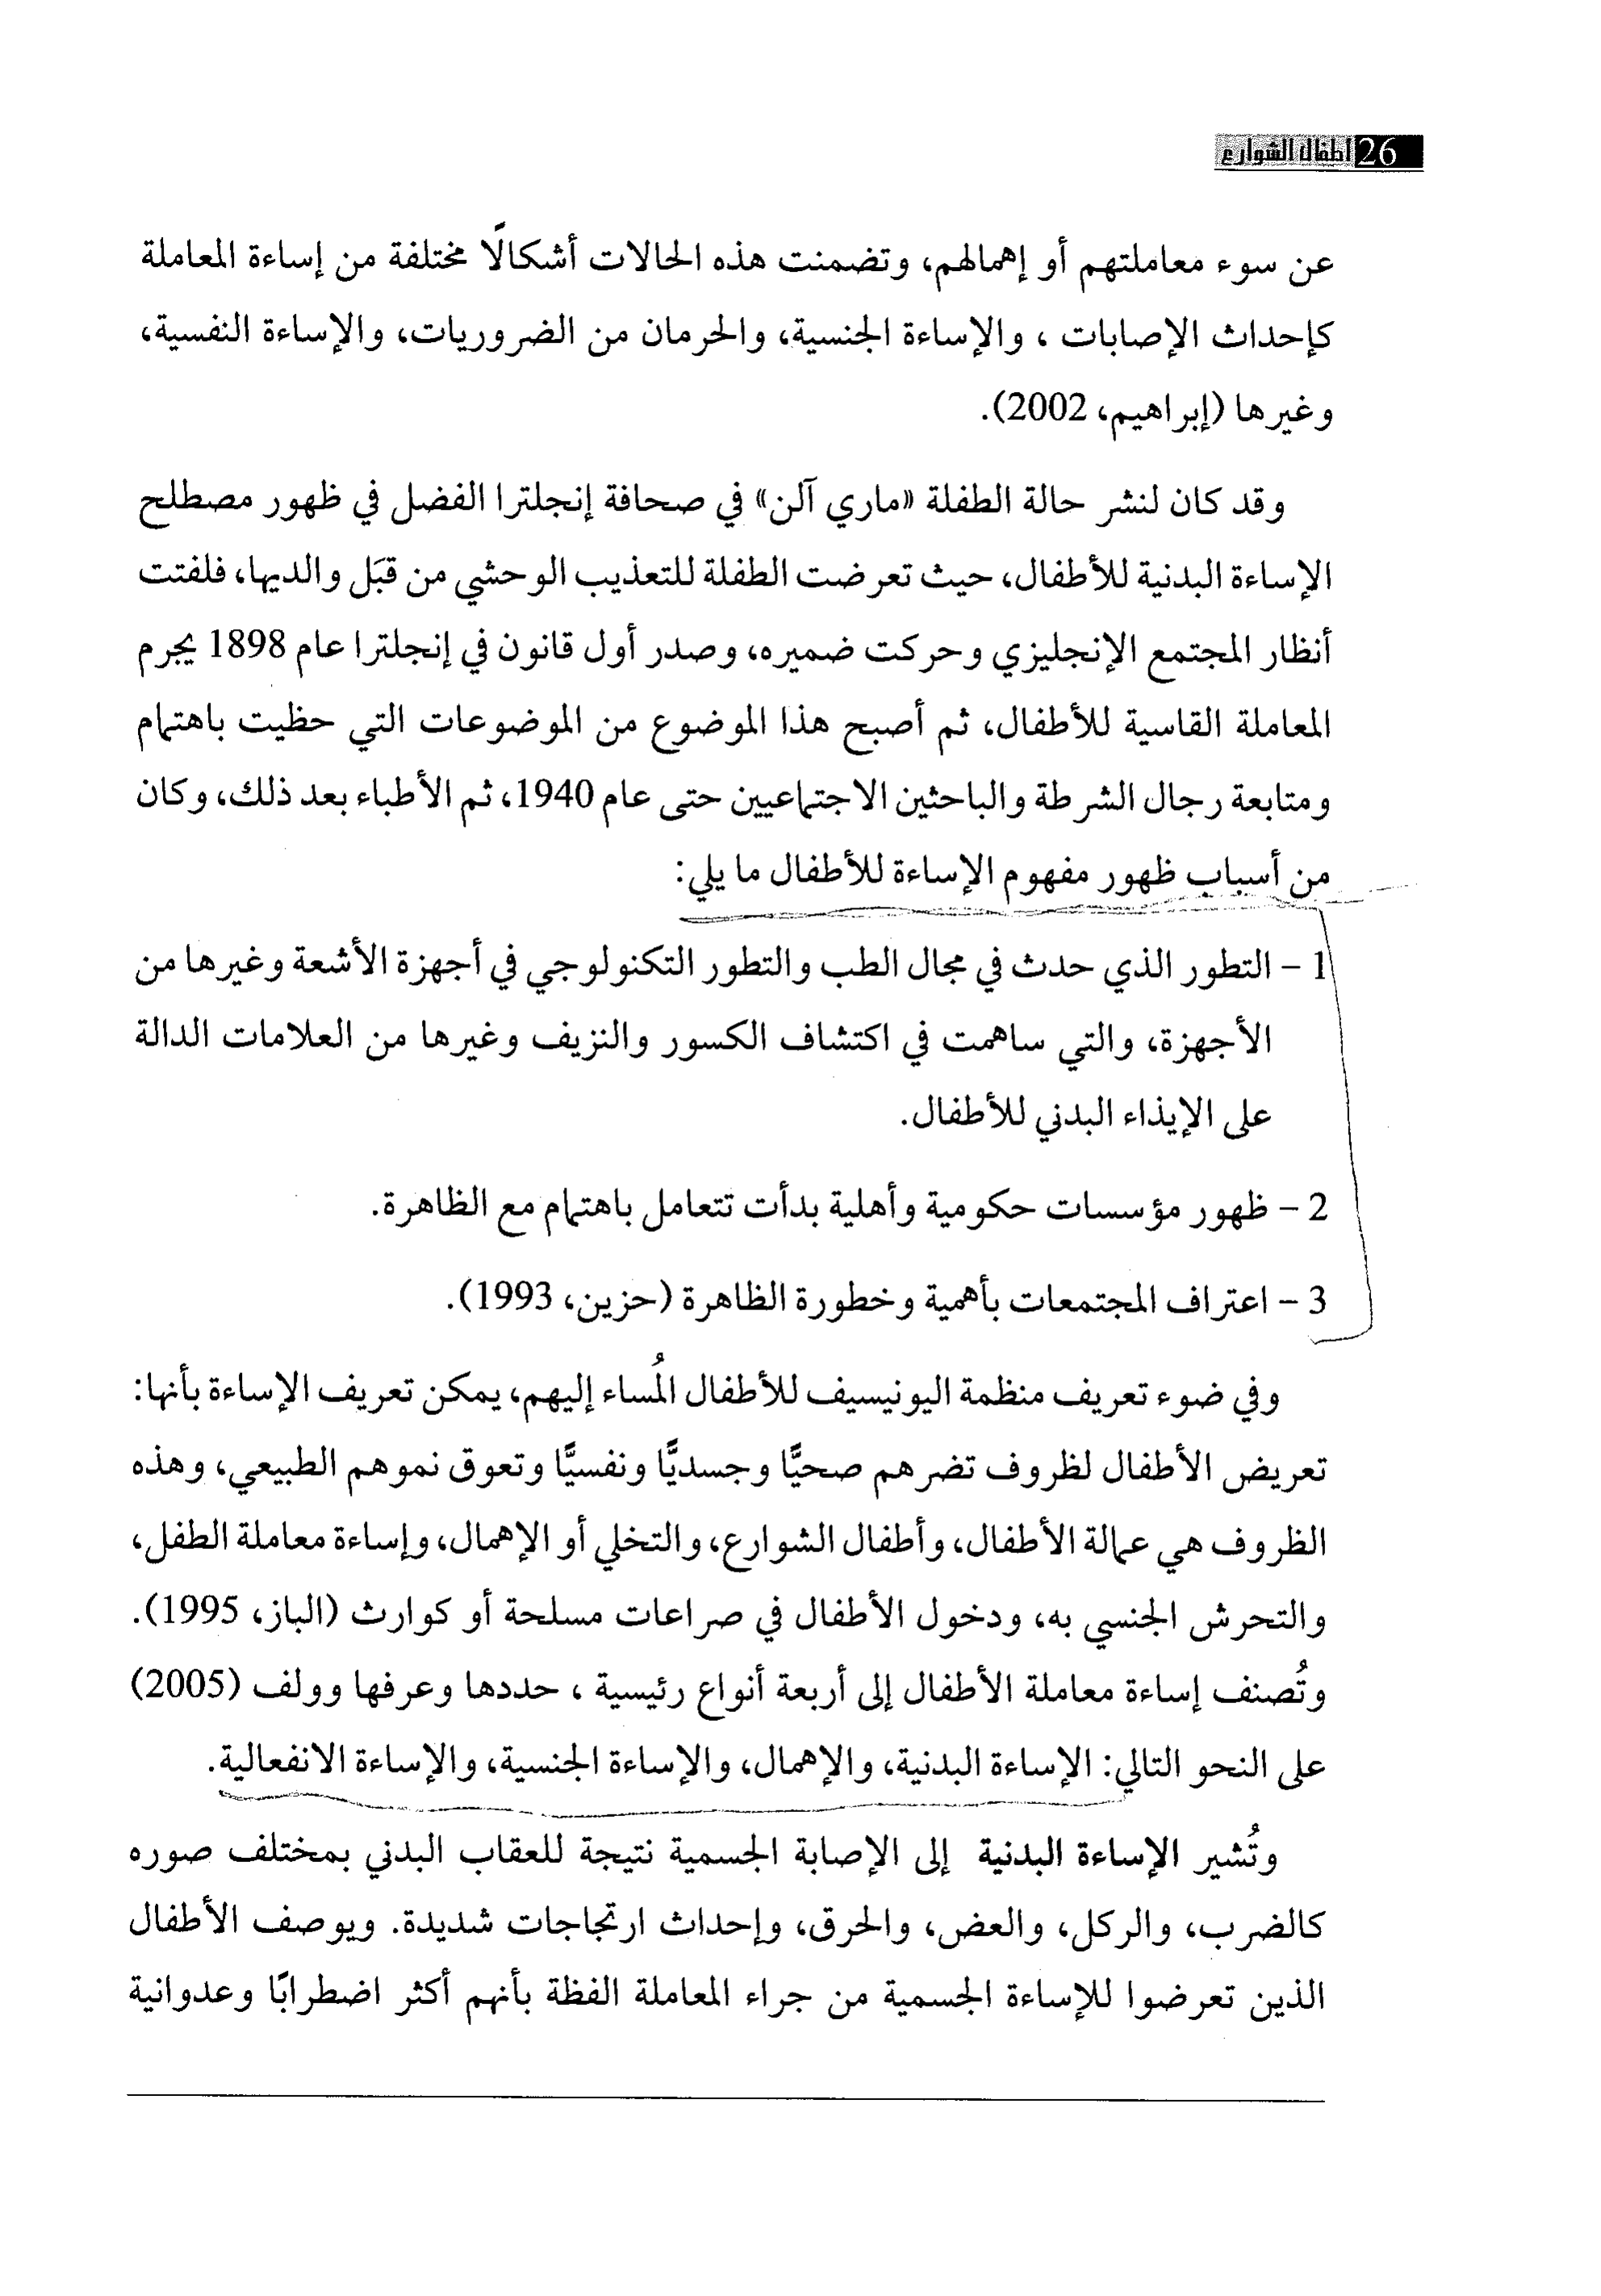 26 أطفال الشوارع
عن سوء معاملتهم أو إهمالهم، وتضمنت هذه الحالات أشكالًا مختلفة من إساءة المعاملة
كإحداث الإصابات ، والإساءة الجنسية، والحرمان من الضروريات، والإساءة النفسية،
وغيرها (إبراهيم، 2002).
وقد كان لنشر حالة الطفلة «ماري آلن» في صحافة إنجلترا الفضل في ظهور مصطلح
الإساءة البدنية للأطفال، حيث تعرضت الطفلة للتعذيب الوحشي من قبَل والديها، فلفتت
أنظار المجتمع الإنجليزي وحركت ضميره، وصدر أول قانون في إنجلترا عام 1898 يجرم
المعاملة القاسية للأطفال، ثم أصبح هذا الموضوع من الموضوعات التي حظيت باهتمام
ومتابعة رجال الشرطة والباحثين الاجتماعيين حتى عام 1940، ثم الأطباء بعد ذلك، وكان
من أسباب ظهور مفهوم الإساءة للأطفال ما يلي:
1 – التطور الذي حدث في مجال الطب والتطور التكنولوجي في أجهزة الأشعة وغيرها من
الأجهزة، والتي ساهمت في اكتشاف الكسور والنزيف وغيرها من العلامات الدالة
على الإيذاء البدني للأطفال.
2 – ظهور مؤسسات حكومية وأهلية بدأت تتعامل باهتمام مع الظاهرة.
3 – اعتراف المجتمعات بأهمية وخطورة الظاهرة (حزين، 1993).
وفي ضوء تعريف منظمة اليونيسيف للأطفال المُساء إليهم، يمكن تعريف الإساءة بأنها:
تعريض الأطفال لظروف تضرهم صحيًّا وجسديًّا ونفسيًّا وتعوق نموهم الطبيعي، وهذه
الظروف هي عمالة الأطفال، وأطفال الشوارع، والتخلي أو الإهمال، وإساءة معاملة الطفل،
والتحرش الجنسي به، ودخول الأطفال في صراعات مسلحة أو كوارث (الباز، 1995).
وتُصنف إساءة معاملة الأطفال إلى أربعة أنواع رئيسية ، حددها وعرفها وولف (2005)
على النحو التالي: الإساءة البدنية، والإهمال، والإساءة الجنسية، والإساءة الانفعالية.
وتُشير الإساءة البدنية إلى الإصابة الجسمية نتيجة للعقاب البدني بمختلف صوره
كالضرب، والركل، والعض، والحرق، وإحداث ارتجاجات شديدة. ويوصف الأطفال
الذين تعرضوا للإساءة الجسمية من جراء المعاملة الفظة بأنهم أكثر اضطرابًا وعدوانية